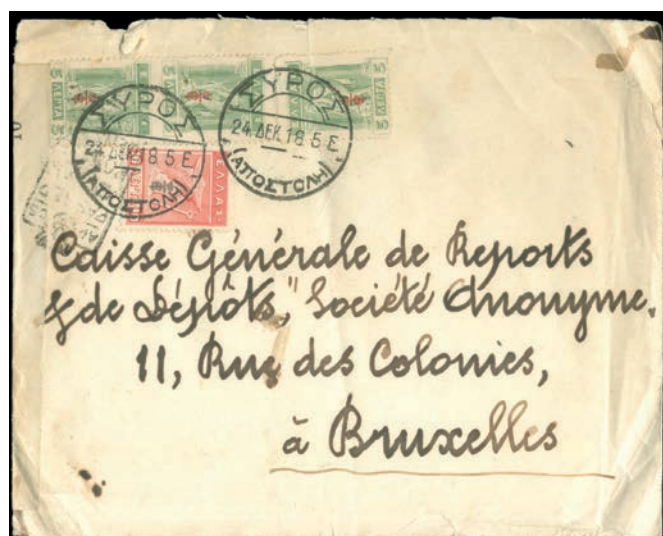 5 ΛΕΠΤΑ 5
5
5 ΛΕΠΤΑ
ΣΥΡΟΣ
24.ΔΕΚ.18 5 Ε
(ΑΠΟΣΤΟΛΗ)
ΣΥΡΟΣ
24.ΔΕΚ.18 5 Ε
(ΑΠΟΣΤΟΛΗ)
ΕΛΛΑΣ
Caisse Générale de Reports
& de Dépôts," Société Anonyme.
11, Rue des Colonies,
à Bruxelles